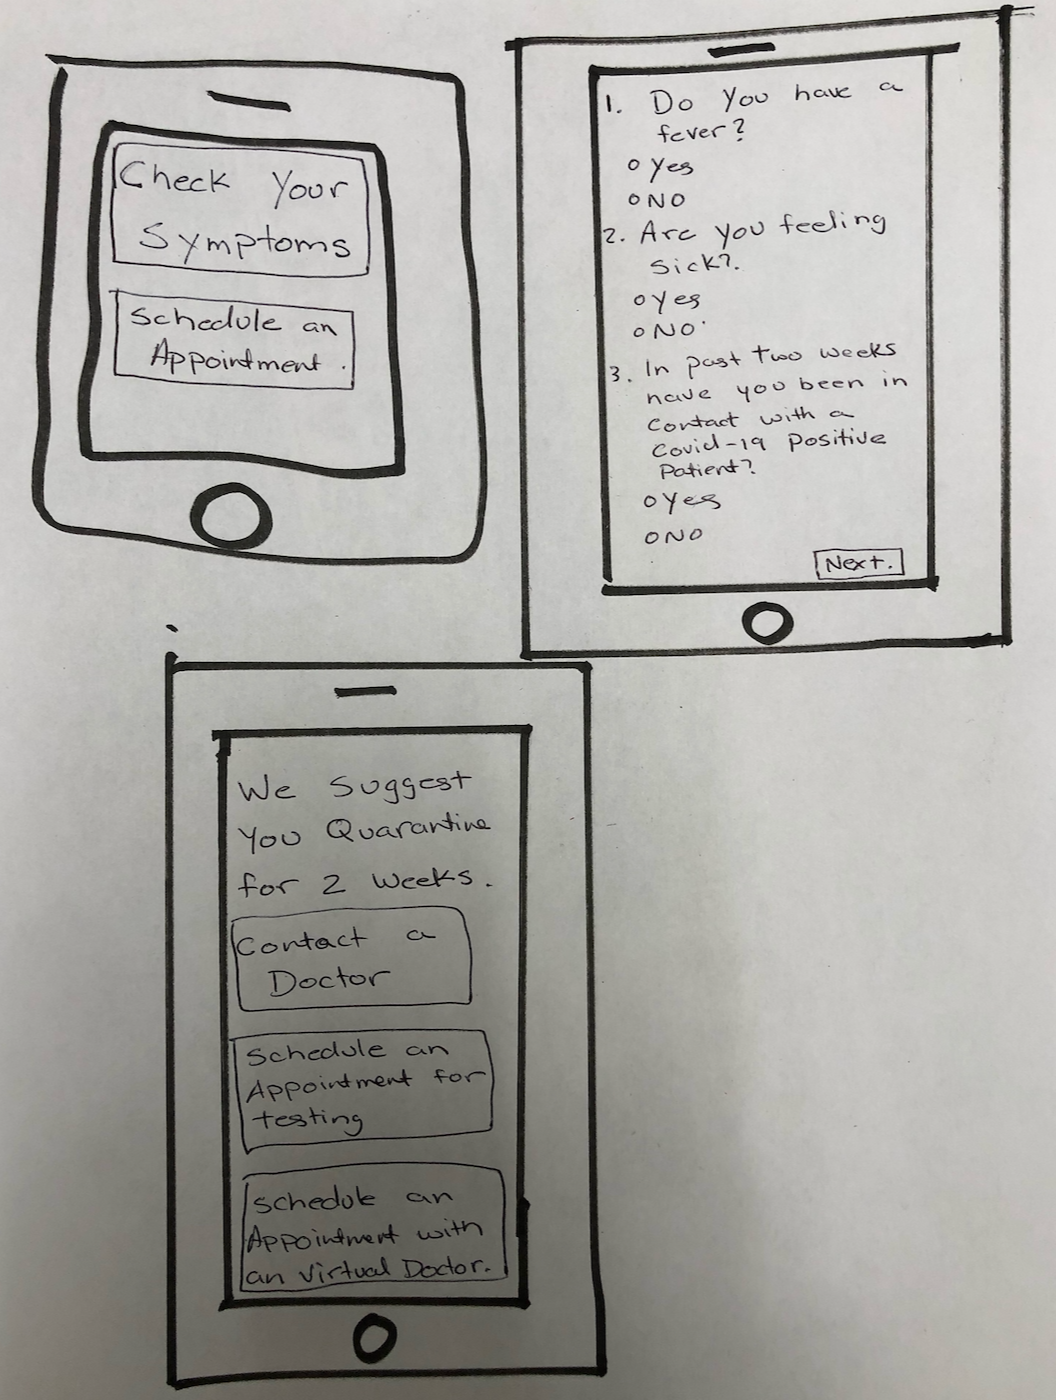 Check Your
Symptoms
Schedule an
Appointment.
1. Do You have a
fever?
Yes
NO
2. Are you feeling
Sick?.
Yes
NO
3. In past two weeks
have you been in
Contact with a
Covid-19 Positive
Patient?
Yes
NO
Next.
We Suggest
You Quarantine
for 2 weeks.
Contact a
Doctor
Schedule an
Appointment for
testing
Schedule an
Appointment with
an Virtual Doctor.